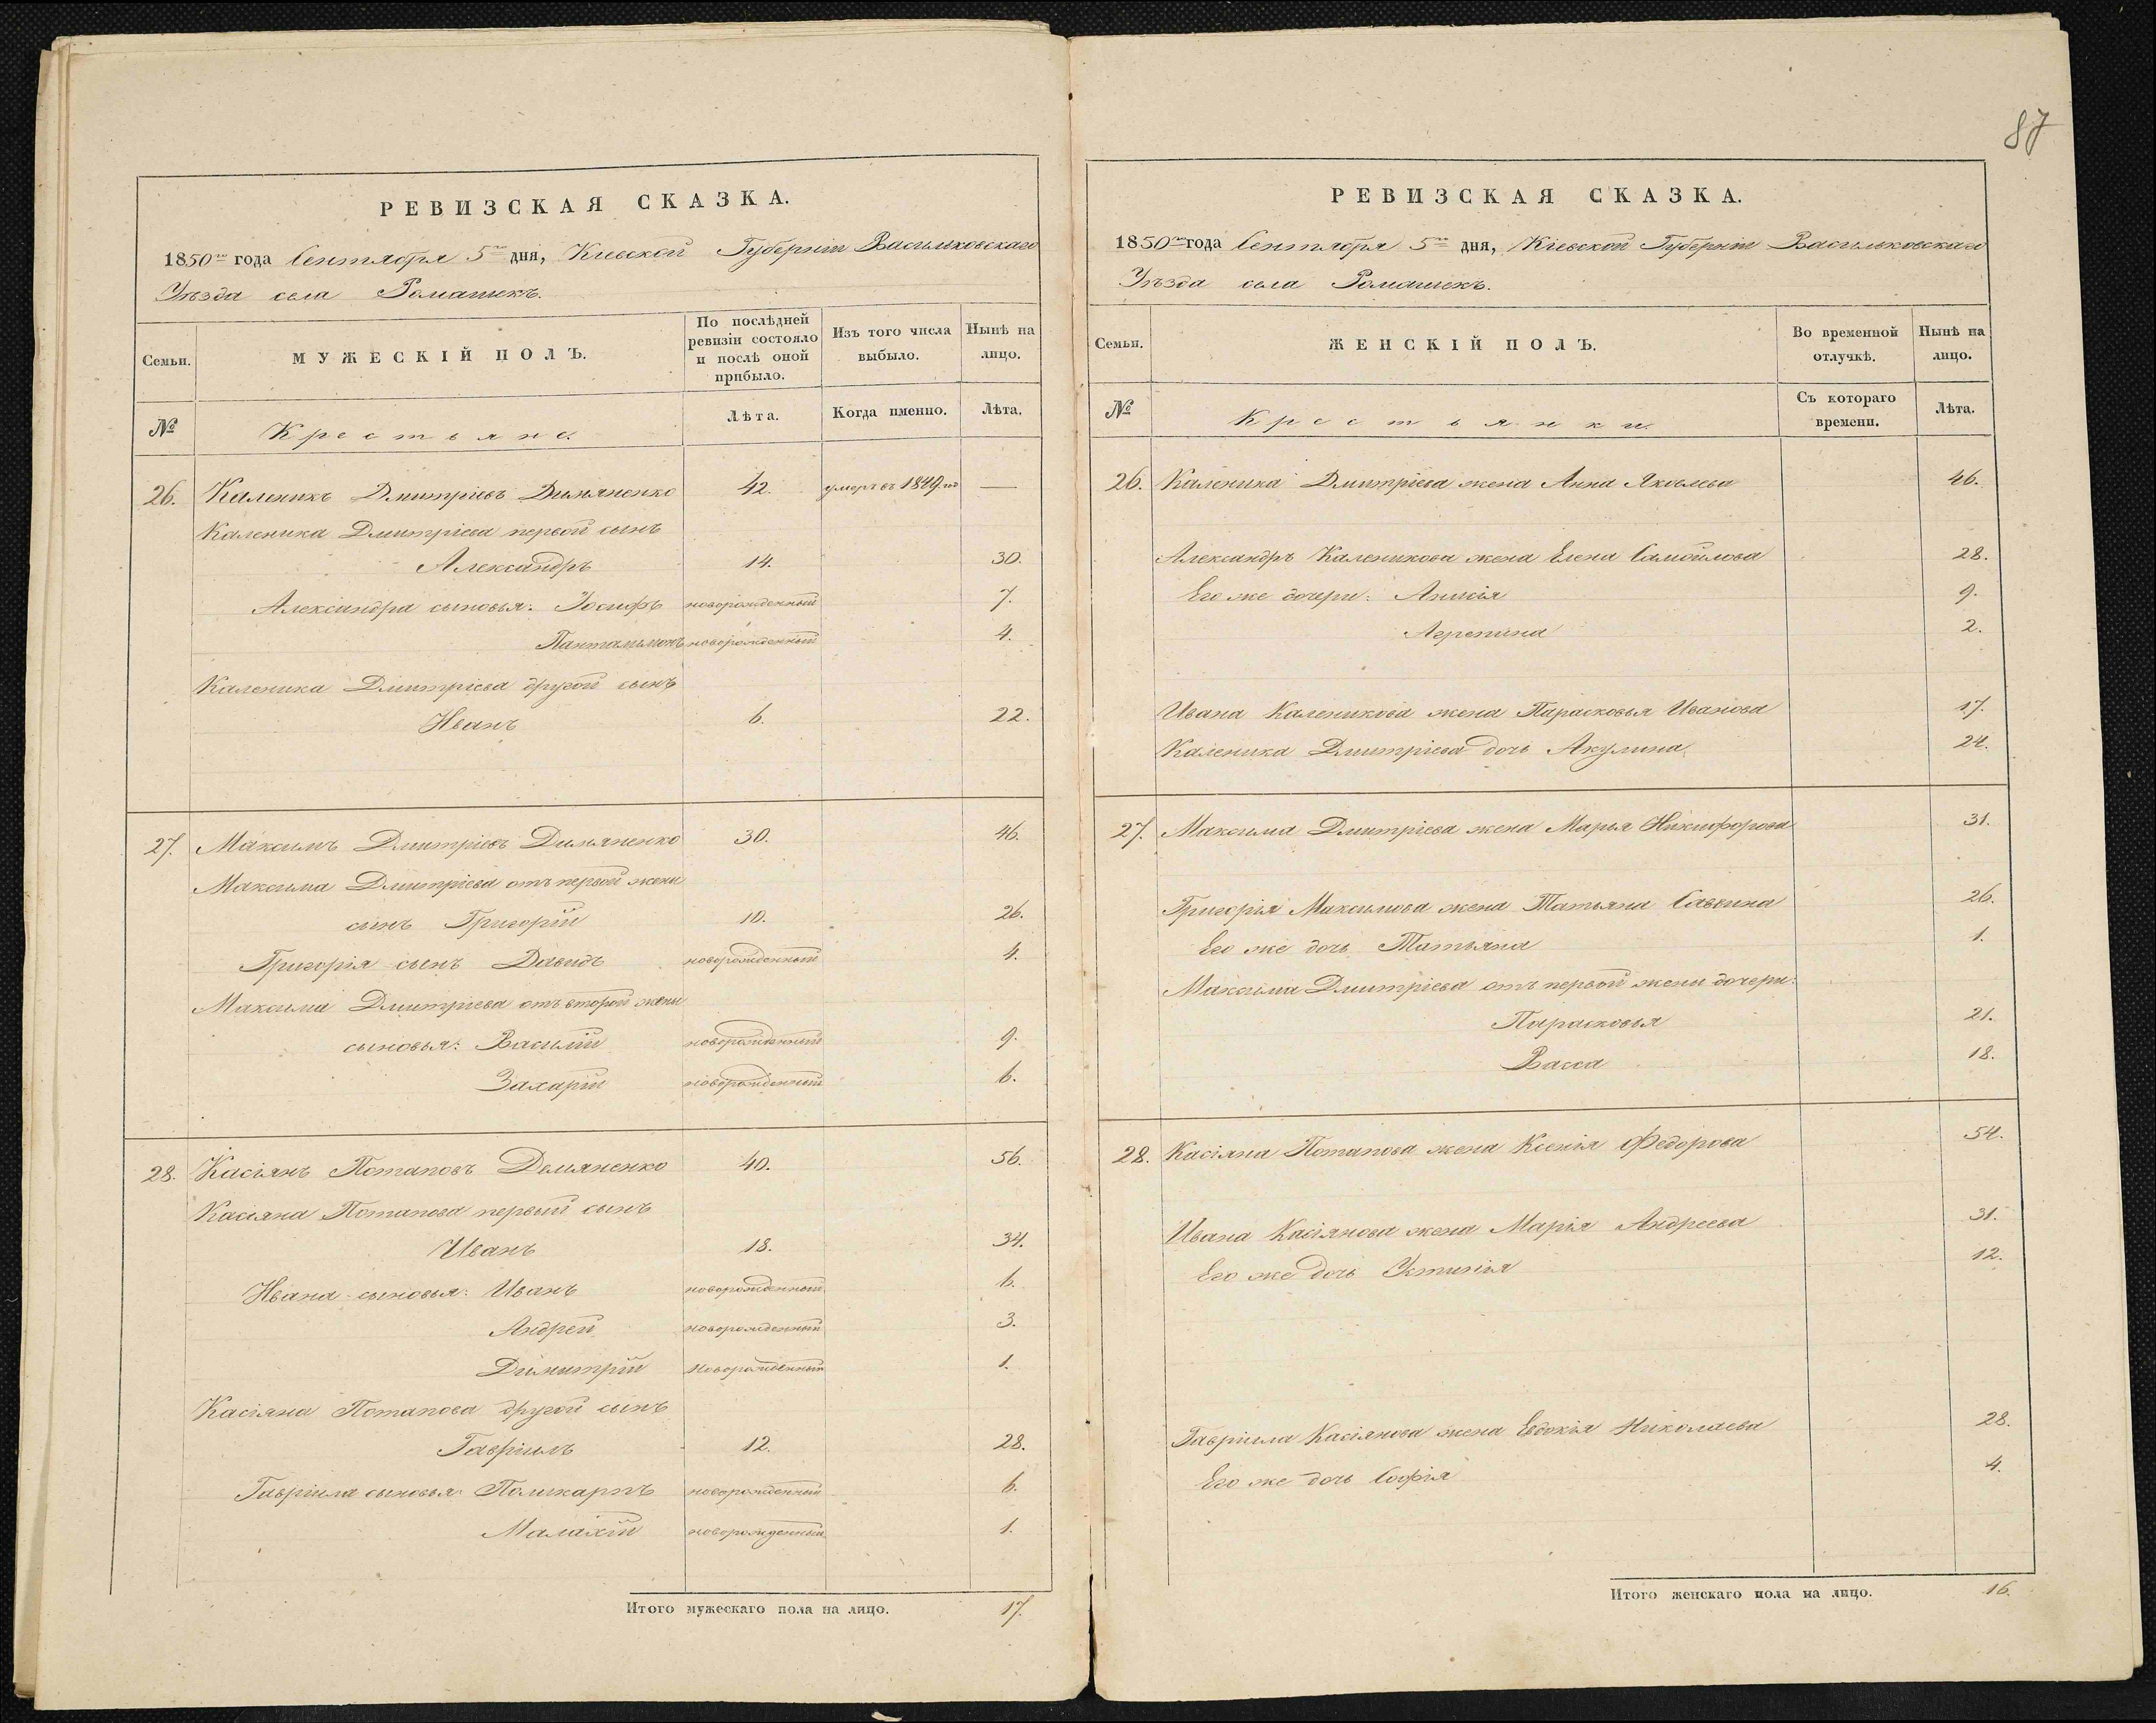 87
РЕВИЗСКАЯ СКАЗКА.
1850го года Сентября 5го дня, Кіевской Губерніи Васильковскаго
Уѣзда села Ромашекъ.
Семьи.
МУЖЕСКІЙ ПОЛЪ.
По послѣдней ревизіи состояло и послѣ оной прибыло.
Изъ того числа выбыло.
Нынѣ на лицо.
№
Крестьяне.
Лѣта.
Когда именно.
Лѣта.
26. Каленикъ Дмитріевъ Димяненко 42. умеръ въ 1849. год —
Каленика Дмитріева первой сынъ
Александръ 14. 30.
Александра сыновья: Іосифъ новорожденный 7.
Панталимонъ новорожденный 4.
Каленика Дмитріева другой сынъ
Иванъ 6. 22.
27. Максимъ Дмитріевъ Димяненко 30. 46.
Максима Дмитріева отъ первой жены
сынъ Григорій 10. 26.
Григорія сынъ Давидъ новорожденный 4.
Максима Дмитріева отъ второй жены
сыновья: Василій новорожденный 9.
Захарій новорожденный 6.
28. Касіянъ Потаповъ Демяненко 40. 56.
Касіяна Потапова первый сынъ
Иванъ 18. 34.
Ивана сыновья: Иванъ новорожденный 6.
Андрей новорожденный 3.
Димитрій новорожденный 1.
Касіяна Потапова другой сынъ
Гавріилъ 12. 28.
Гавріила сыновья: Поликарпъ новорожденный 6.
Малахій новорожденный 1.
Итого мужескаго пола на лицо. 17.
РЕВИЗСКАЯ СКАЗКА.
1850го года Сентября 5го дня, Кіевской Губерніи Васильковскаго
Уѣзда села Ромашекъ.
Семьи.
ЖЕНСКІЙ ПОЛЪ.
Во временной отлучкѣ.
Нынѣ на лицо.
№
Крестьянки.
Съ котораго времени.
Лѣта.
26. Каленика Дмитріева жена Анна Яковлева 46.
Александръ Каленикова жена Елена Самойлова 28.
Его же дочери: Анисія 9.
Агрепина 2.
Ивана Каленикова жена Парасковья Иванова 17.
Каленика Дмитріева дочь Акулина. 24.
27. Максима Дмитріева жена Марья Никифорова 31.
Григорія Максимова жена Татьяна Саввина 26.
Его же дочь Татьяна 1.
Максима Дмитріева отъ первой жены дочери:
Парасковья 21.
Васса 18.
28. Касіяна Потапова жена Ксенія Федорова 54.
Ивана Касіянова жена Марія Андреева 31.
Его же дочь Устинія 12.
Гавріила Касіянова жена Евдокія Николаева 28.
Его же дочь Софія 4.
Итого женскаго пола на лицо. 16.